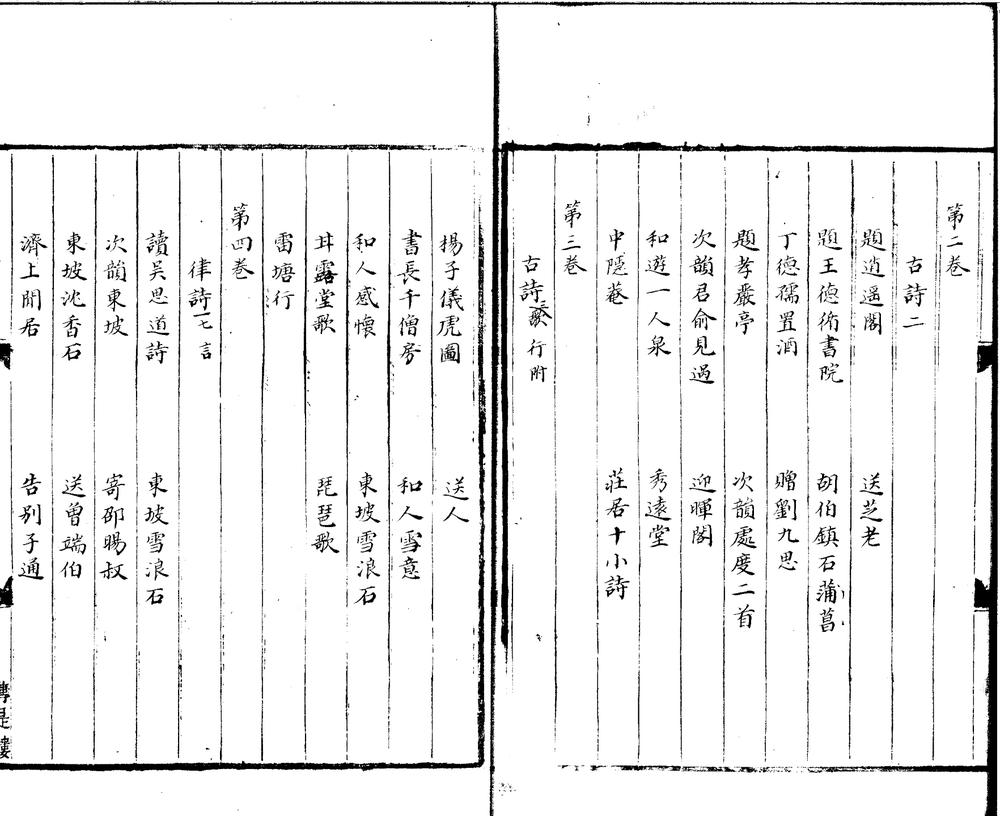 第二卷
古詩二
題逍遥閣　送芝老
題王德術書院　胡伯鎮石菖蒲
丁德孺置酒　贈劉九思
題孝嚴亭　次韻處度二首
次韻君俞見過　迎暉閣
和遊一人泉　秀遠堂
中隱菴　莊居十小詩
第三卷
古詩三歌行附
楊子儀虎圖　送人
書長干僧房　和人雪意
和人感懷　東坡雪浪石
甘露堂歌　琵琶歌
雷塘行
第四卷
律詩一七言
讀吳思道詩　東坡雪浪石
次韻東坡　寄邵賜叔
東坡沈香石　送曾端伯
濟上閒居　告别子通
傳是樓